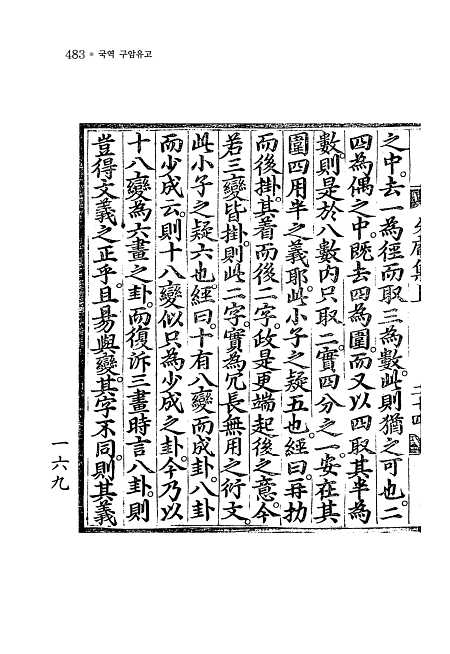 483 ● 국역 구암유고
之中。去一為徑而取三為數。此則猶之可也。二
四為偶之中。旣去四為圍。而又以四取其半為
數。則是於八數內只取二。實四分之一。安在其
圍四用半之義耶。此小子之疑五也。經曰。再扐
而後掛。其着而後二字。政是更端起後之意。今
若三變皆掛。則此二字。實為冗長無用之衍文。
此小子之疑六也。經曰。十有八變而成卦。八卦
而少成云。則十八變。似只為少成之卦。今乃以
十八變為六畫之卦。而復訴三畫時言八卦。則
豈得文義之正乎。且易與變。其字不同。則其義
一六九